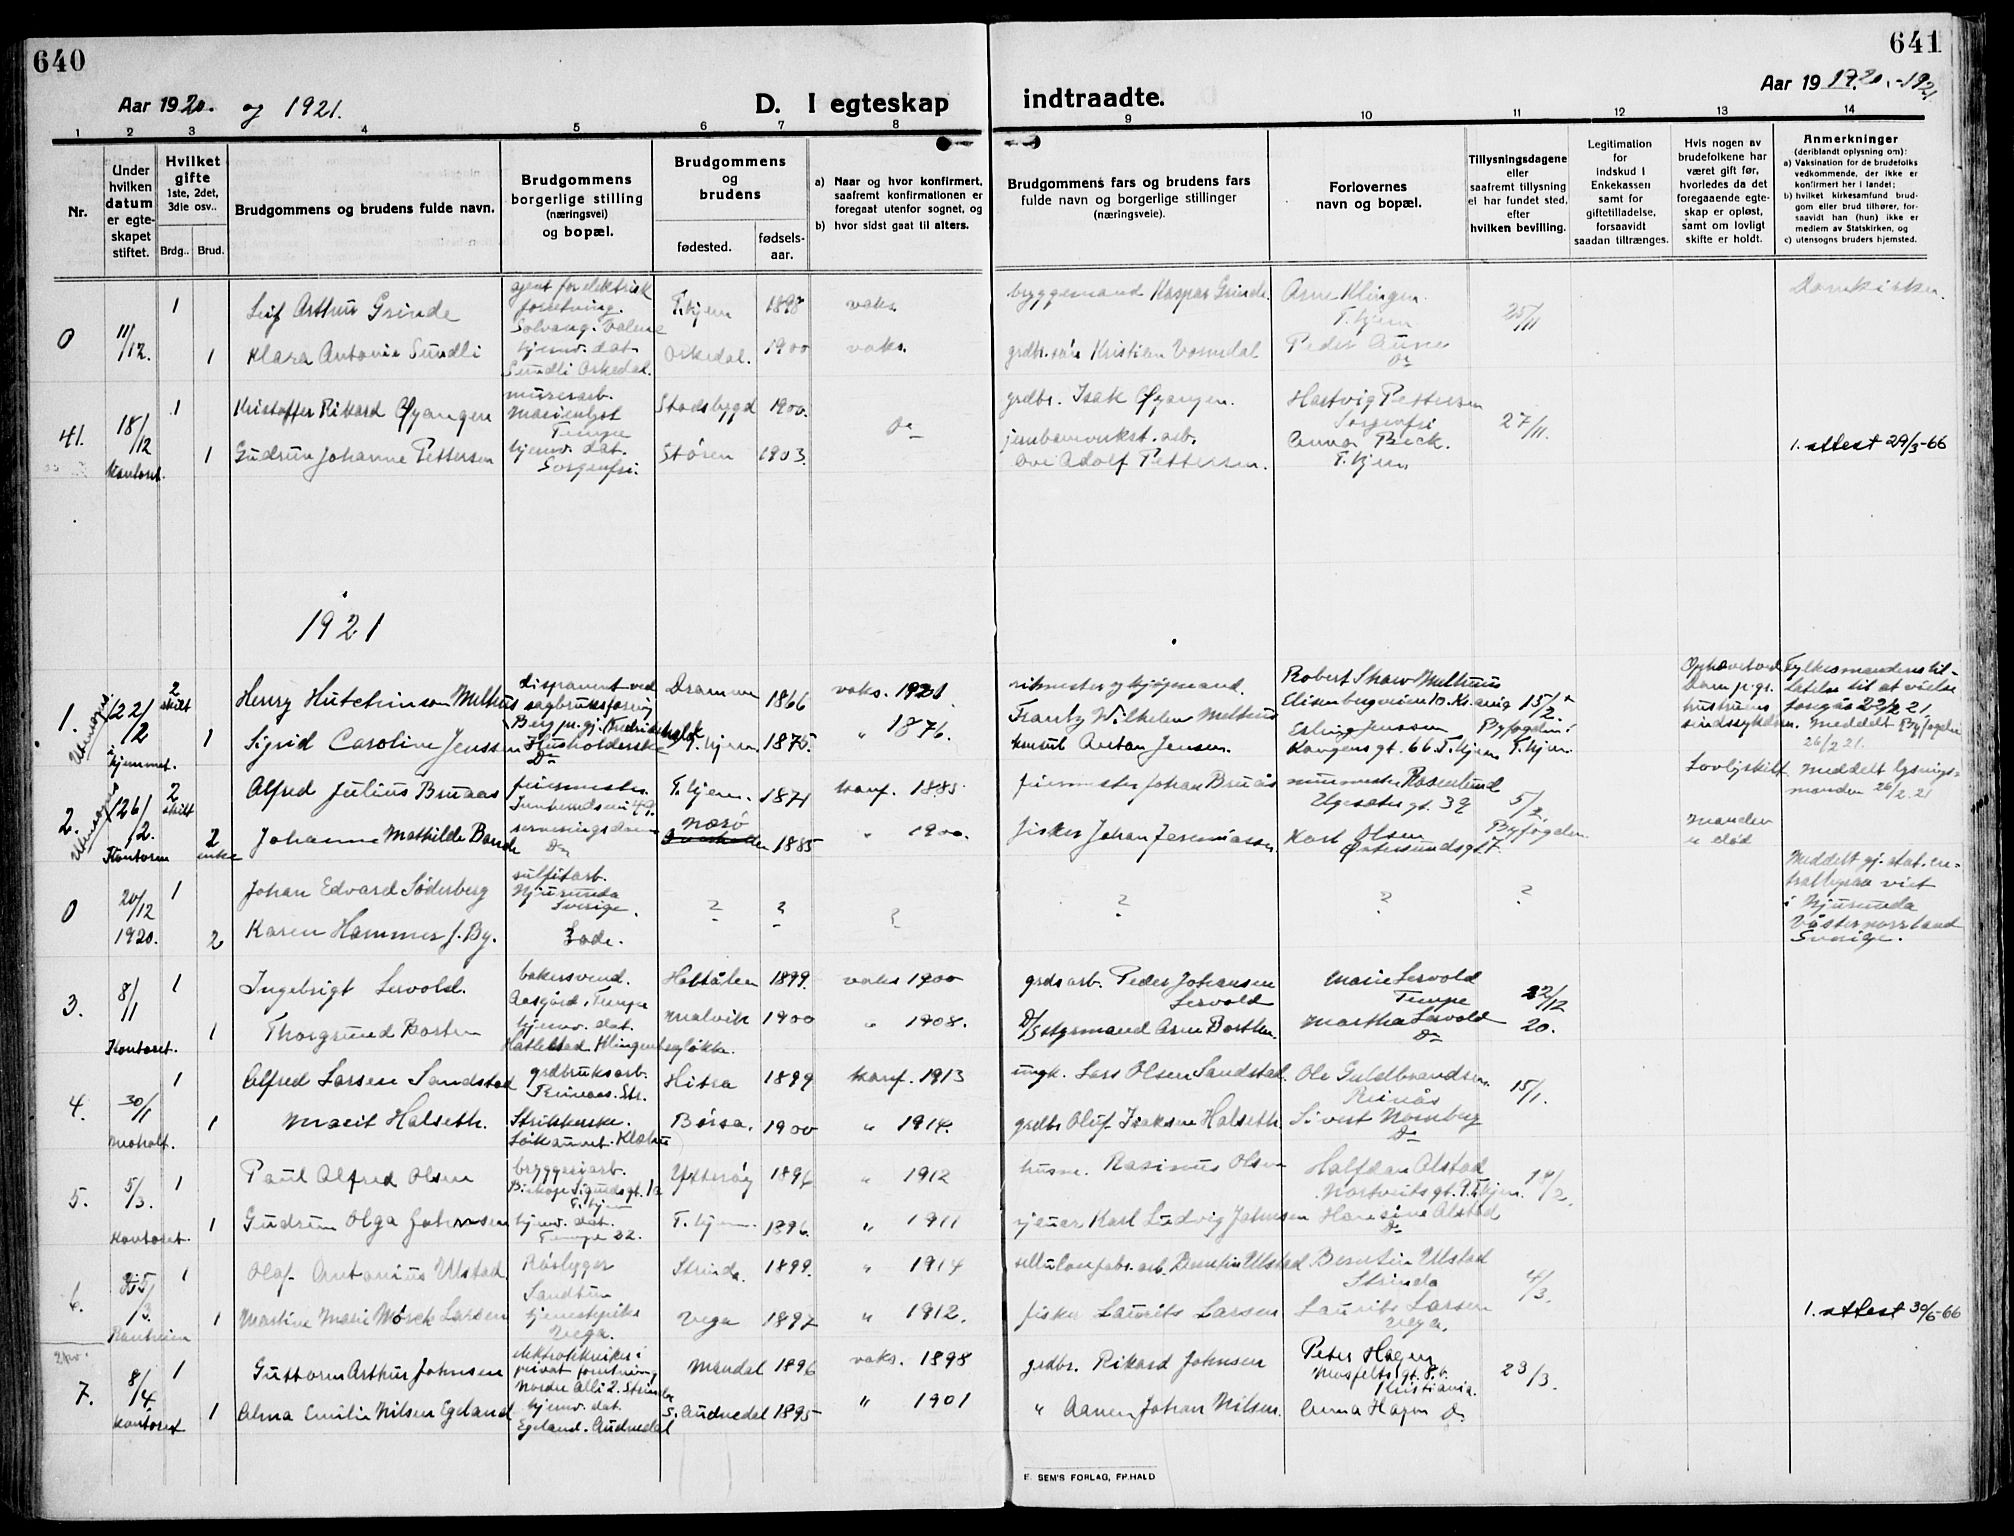 640
641
Aar 1920. og 1921.
D. I egteskap
indtraadte.
Aar 19 20.-1921
1 2 3 4 5 6 7 8 9 10 11 12 13 14
Nr.
Under hvilken datum er egte-skapet stiftet.
Hvilket gifte
1ste, 2det, 3die osv..
Brdg.. Brud.
Brudgommens og brudens fulde navn.
Brudgommens borgerlige stilling (næringsvei) og bopæl.
Brudgommens og brudens
fødested.
fødsels-aar.
a) Naar og hvor konfirmert, saafremt konfirmationen er foregaat utenfor sognet, og
b) hvor sidst gaat til alters.
Brudgommens fars og brudens fars fulde navn og borgerlige stillinger (næringsveie).
Forlovernes navn og bopæl.
Tillysningsdagene eller saafremt tillysning ei har fundet sted, efter hvilken bevilling.
Legitimation for indskud i Enkekassen samt for giftetilladelse, forsaavidt saadan tiltrænges.
Hvis nogen av brudefolkene har været gift før, hvorledes da det foregaaende egte-skap er opløst, samt om lovligt skifte er holdt.
Anmerkninger
(deriblandt oplysning om):
a) Vaksination for de brudefolks vedkommende, der ikke er konfirmert her i landet;
b) hvilket kirkesamfund brud-gom eller brud tilhører, for-saavidt han (hun) ikke er medlem av Statskirken, og
c) utensogns bruders hjemsted.
0 11/12. 1 Leif Arthur Grinde agent for elektrisk forretning. T.hjem 1898 vaks. byggemand Kaspar Grinde. Arne Klingen T.hjem 25/11 Domkirken.
1 Klara Antonie Sundli hjemv. dat. Sundli Orkedal. Orkedal. 1900 vaks. Kristian Peder Aune Do
41. 18/12 Kontoret. 1 Kristoffer Rikard Øyangen murerarb. Marienlyst Tempe Stadsbygd 1900. Do grdbr. Isak Øyangen. Hartvig Pettersen Sorgenfri 27/11.
1 Gudrun Johanne Pettersen hjemv. dat. Sorgenfri. Støren 1903. jernbaneverkst. arb. Ove Adolf Pettersen. Anna Beck. T.hjem 1. attest 29/3-66
1921
1. 22/2 i hjemmet. 2 skilt Henry Hutchinson Melhuus disponent ved sagbruksforening Berg p.gj. Fredrikshald Drammen 1866 vaks. 1921. Frantz Wilhelm Melhuus Robert Shaw Melhuus Elisenbergveien 10. Kr.ania 15/2. Ophævet ved Dom p.gr. hustruens sindssykdom. Fylkesmandens til-latelse til at vielse 22/2 21. meddelt Byfogden 26/2 21.
1 Sigrid Caroline Jenssen Husholderske Do T.hjem. 1875. " 1876. konsul Anton Jensen. Erling Jenssen Kongensgt. 66. T.hjem Byfogden i T.hjem.
2. 26/2. Kontoret 2 skilt Alfred Julius Bruaas feiermester. T.hjem. 1871 konf. 1885 feiermester Johan Bruås murmester Rosenlund 39 5/2. Lovlig skilt. Meddelt lysnings-manden 26/2. 21
2 enke Johanne Mathilde Nærø 1885 " 1900. fisker Johan Jeremiassen Karl Olsen Østersundsgt. 7 Byfogden manden er død
0 20/12 1920. 1 Johan Edvard Söderberg sulfitarb. Njurunda Sverige. ? ? ? ? ? ? Meddelt gj. stat. cen-tralbyraa viet i Njurunda Västernorrland Sverige.
2 Karen Hammer f. By. Lade.
3. 8/1 Kontoret. 1 Ingebrigt Lervold. bakersvend. Aasgård. Tempe Holtålen 1899. vaks 1900 grds arb. Peder Johansen Lervold Marie Lervold Tempe 22/12 20.
1 Thorgrund Borten hjemv. dat. Malvik 1900 " 1908. styrmand Arne Martha Lervold Do
4. 30/1 1 Alfred Larsen Sandstad grdbruksarb. Hitra 1899 konf. 1913 ungk. Lars Olsen Sandstad. Ole Guldbrandsen. Reinås 15/1.
1 Marit Halseth. Strikkerske. Børsa. 1900 " 1914. grdbr. Oluf Isaksen Halseth. Sivert Do
5. 5/3. Kontoret. 1 Paul Alfred Olsen bryggeriarb. Biskop Sigurdsgt. 1a T.hjem Ytterøy 1896 " 1912 husm. Rasinus Olsen Halfdan Alstad T.hjem. 18/2.
1 Gudrun Olga Johansen hjemv. dat. Tempe 22. T.hjem. 1896. " 1911 Karl Ludvig Johnsen Alstad Do
6. 25/3. 1 Olaf Antonius Ulstad Råsbygger Sandbu Strinda. 1899. " 1914 arb. Berntin Ulstad Berntin Ulstad Strinda 4/3.
1 Martine Marie Mørch Larsen tjenestepike Vega. Vega 1897 " 1912. fisker Laurits Larsen Laurits Larsen Vega. 1. attest 30/6-66
7. 8/4 Kontoret 1 Guttorm Arthur Johnsen elektrotekniker i privat forretning Nordre Alle 2. Strinda Mandal 1896 vaks. 1898 grdbr. Rikard Johnsen Peter Hagen Kristiania. 23/3.
1 Alma Emilie Nilsen Egeland hjemv. dat. Egeland. Audnedal S. Audnedal 1895 " 1901 " Aanen Johan Nilsen. Anna Hagen Do
E. SEM'S FORLAG, FR.HALD